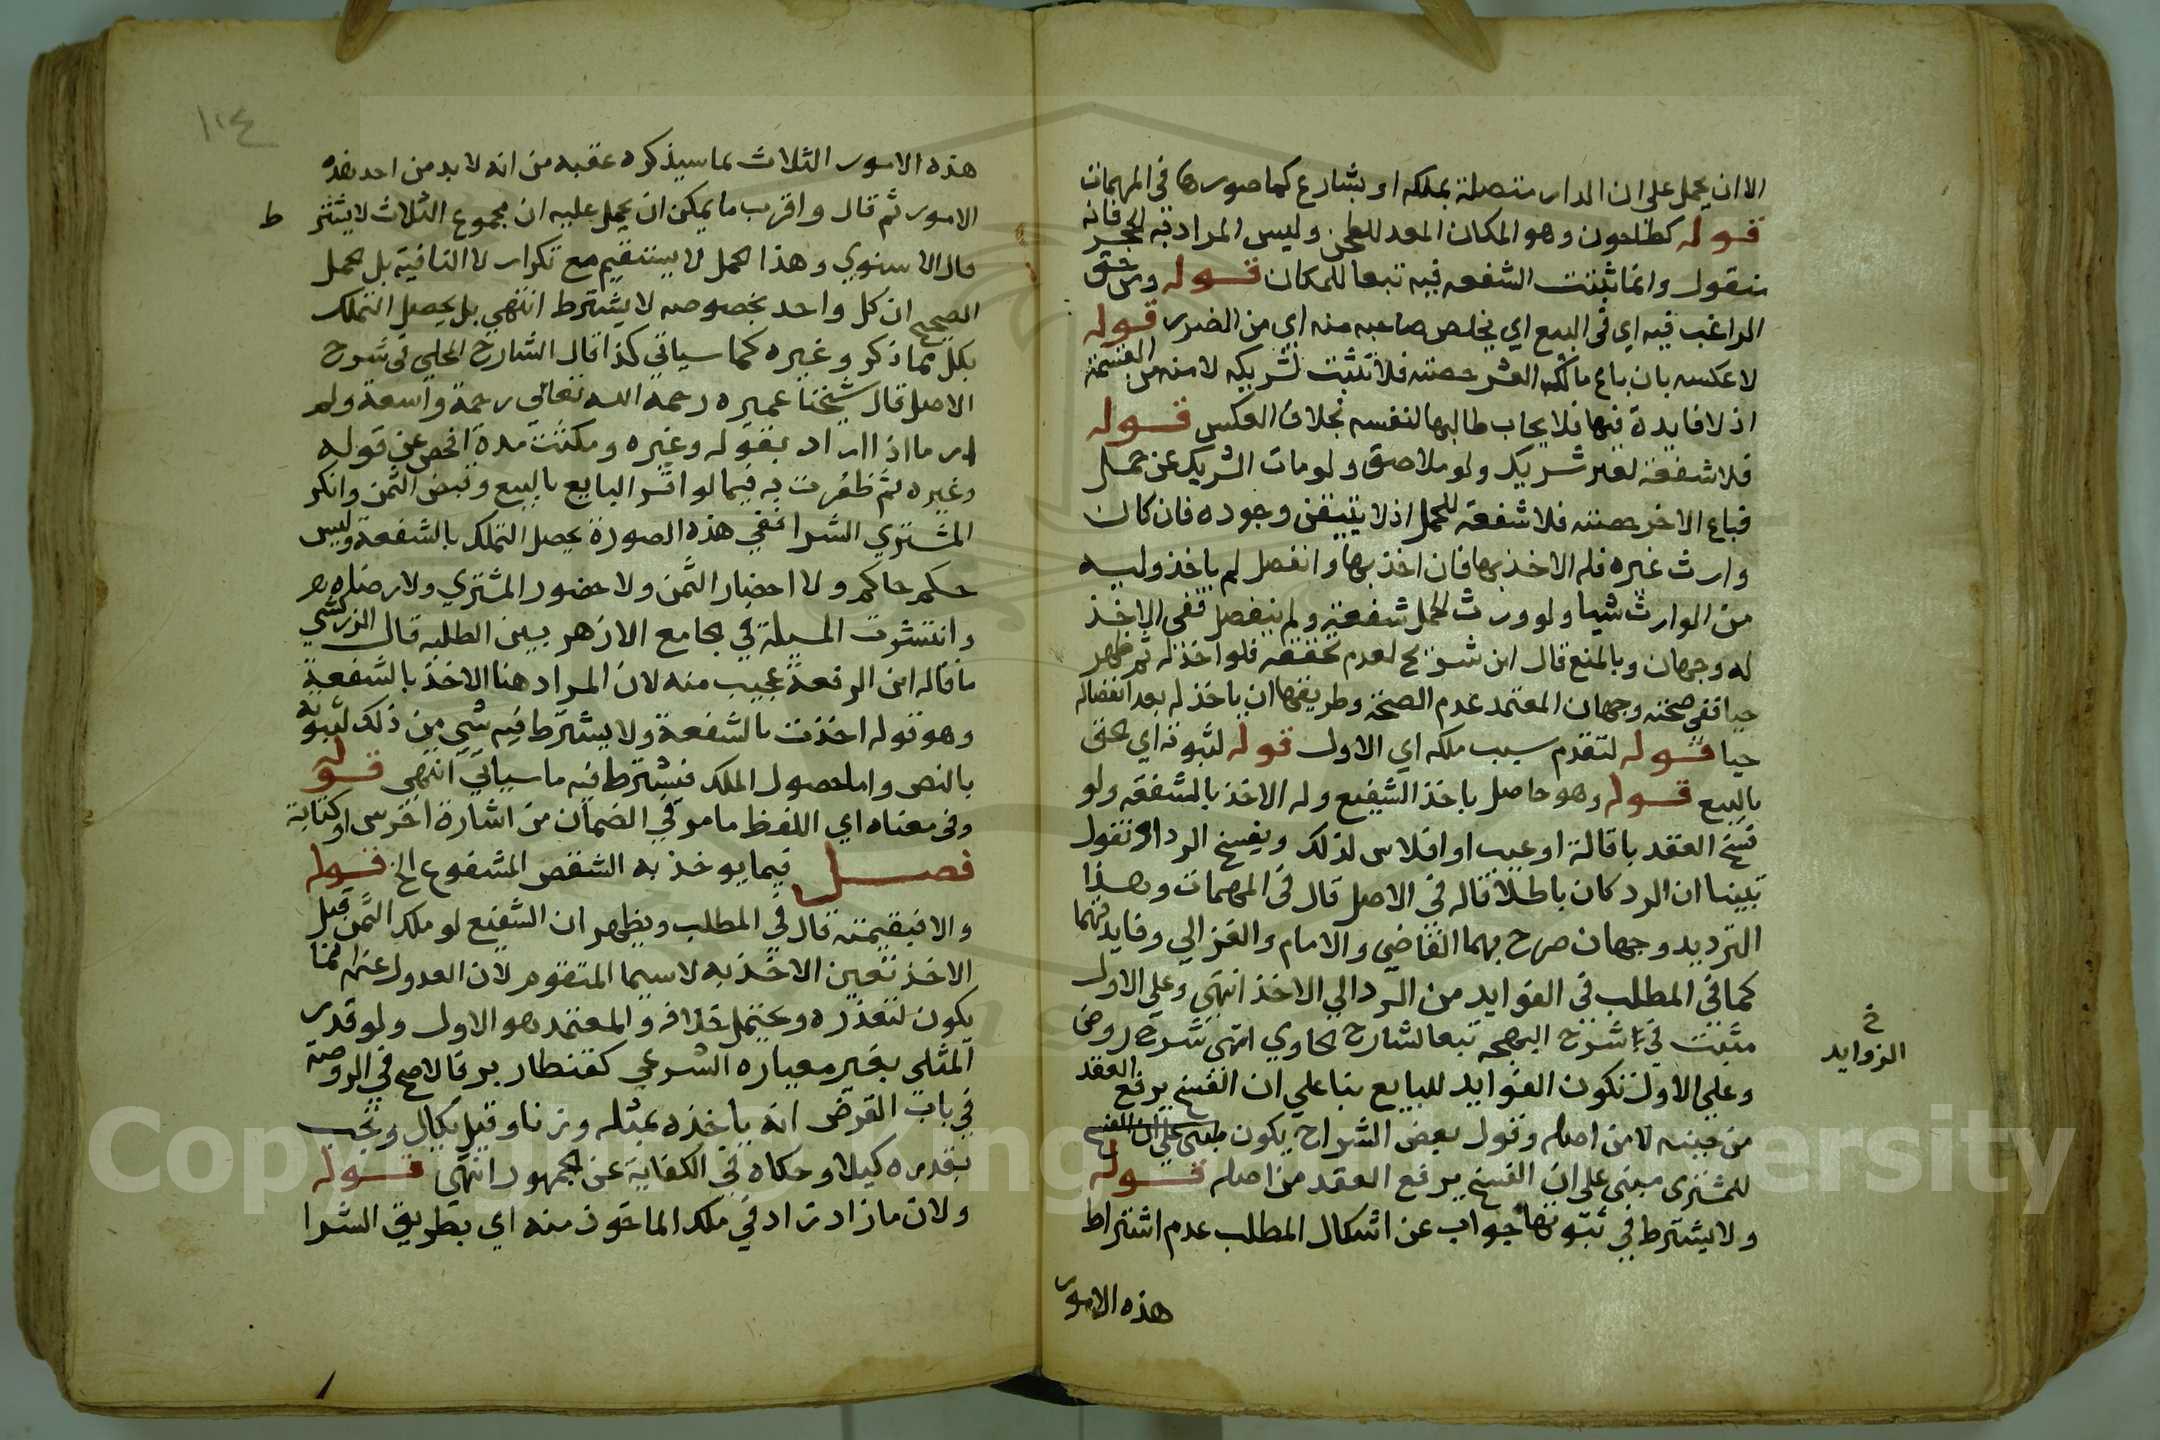 الا ان يحمل على ان الدار متصلة بملكه او بشارع كما صورها في المهمات
قوله كطاحون وهو المكان المعد للطحن وليس المراد به الحجر فانه
منقول وانما ثبتت الشفعه فيه تبعا للمكان قوله وس حق
الراغب فيه اي في البيع اي يخلص صاحبه منه اي من الضرر قوله
لا عكسه بان باع مالك العشر حصته فلا تثبت لشريكه لامنه من القسمة
اذ لا فايدة فيها فلا يجاب طالبها لنفسه بخلاف العكس قوله
فلا شفعة لغير شريك ولو ملاصق ولو مات الشريك عن حمل
فباع الاخر حصته فلا شفعة للحمل اذ لا يتيقن وجوده فان كان
وارث غيره فله الاخذ بها فان اخذ بها وانفصل لم ياخذ وليه
من الوارث شيا ولو ورث الحمل شفعة ولم ينفصل ففي الاخذ
له وجهان وبالمنع قال ابن شريح لعدم تحققه فلو اخذ له ثم ظهر
حيا ففي صحته وجهان المعتمد عدم الصحة وطريقها ان ياخذ له بعد انفصاله
حيا قوله لتقدم سبب ملكه اي الاول قوله لثبوته اي حق
بالبيع قوله وهو حاصل باخذ الشفيع وله الاخذ بالشفعه ولو
فسخ العقد باقالة او عيب او افلاس لذلك ويفسخ الرد او نقول
تبينا ان الرد كان باطلا قاله في الاصل قال في المهمات وهذا
الترديد وجهان صرح بهما القاضي والامام والغزالي وفايدتهما
كما في المطلب في الفوايد من الرد الي الاخذ انتهى وعلي الاول
مثبت في شرح البهجه تبعا لشارح الحاوي انتهى شرح روض
وعلى الاول تكون الفوايد للبايع بنا علي ان الفسخ يرفع العقد
من حينه لا من اصله وقول بعض الشراح يكون مبني علي ان الفسخ
للمشتري مبني على ان الفسخ يرفع العقد من اصله قوله
ولا يشترط في ثبوتها جواب عن اشكال المطلب عدم اشتراط
هذه الامور
خ
الزوايد
١١٤
هذه الامور الثلاث بما سيذكره عقبه من انه لا بد من احد هذه
الامور ثم قال واقرب ما يمكن ان يحمل عليه ان مجموع الثلاث لا يشتر ط
قال الاسنوي وهذا الحمل لا يستقيم مع تكرار لا النافية بل الحمل
الصحيح ان كل واحد بخصوصه لا يشترط انتهى بل يحصل التملك
بكل مما ذكر وغيره كما سياتي كذا قال الشارح المحلي في شرح
الاصل قال شيخنا عميره رحمه الله تعالي رحمة واسعة ولم
ادر ما اذا اراد بقوله وغيره ومكثت مدة افحص عن قوله
وغيره ثم ظفرت به فيما لو اقر البايع بالبيع وقبض الثمن وانكر
المشتري الشرا ففي هذه الصورة يحصل التملك بالشفعة وليس
حكم حاكم ولا احضار الثمن ولا حضور المشتري ولا رضاه
وانتشرت المسيلة في جامع الازهر بين الطلبه قال الزركشي
ما قاله ابن الرفعة عجيب منه لان المراد هنا الاخذ بالشفعة
وهو قوله اخذت بالشفعة ولا يشترط فيه شي من ذلك لثبوته
بالنص واما حصول الملك فيشترط فيه ما سياتي انتهى قوله
وفي معناه اي اللفظ ما مر في الضمان من اشارة اخرس او كتابة
فصل فيما يوخذ به الشقص المشفوع الخ قوله
والا فبقيمته قال في المطلب ويظهر ان الشفيع لو ملك الثمن قبل
الاخذ تعين الاخذ به لا سيما المتقوم لان العدول عنه انما
يكون لتعذره ويحتمل خلافه والمعتمد هو الاول ولو قدر
المثلي بغير معياره الشرعي كقنطار بر قال الاصح في الروضة
في باب القرض انه ياخذه بمثله وزنا وقيل يكال ويجب
بقدره كيلا وحكاه في الكفاية عن الجمهور انتهى قوله
ولان ما زاد زاد في ملك الماخوذ منه اي بطريق الشرا